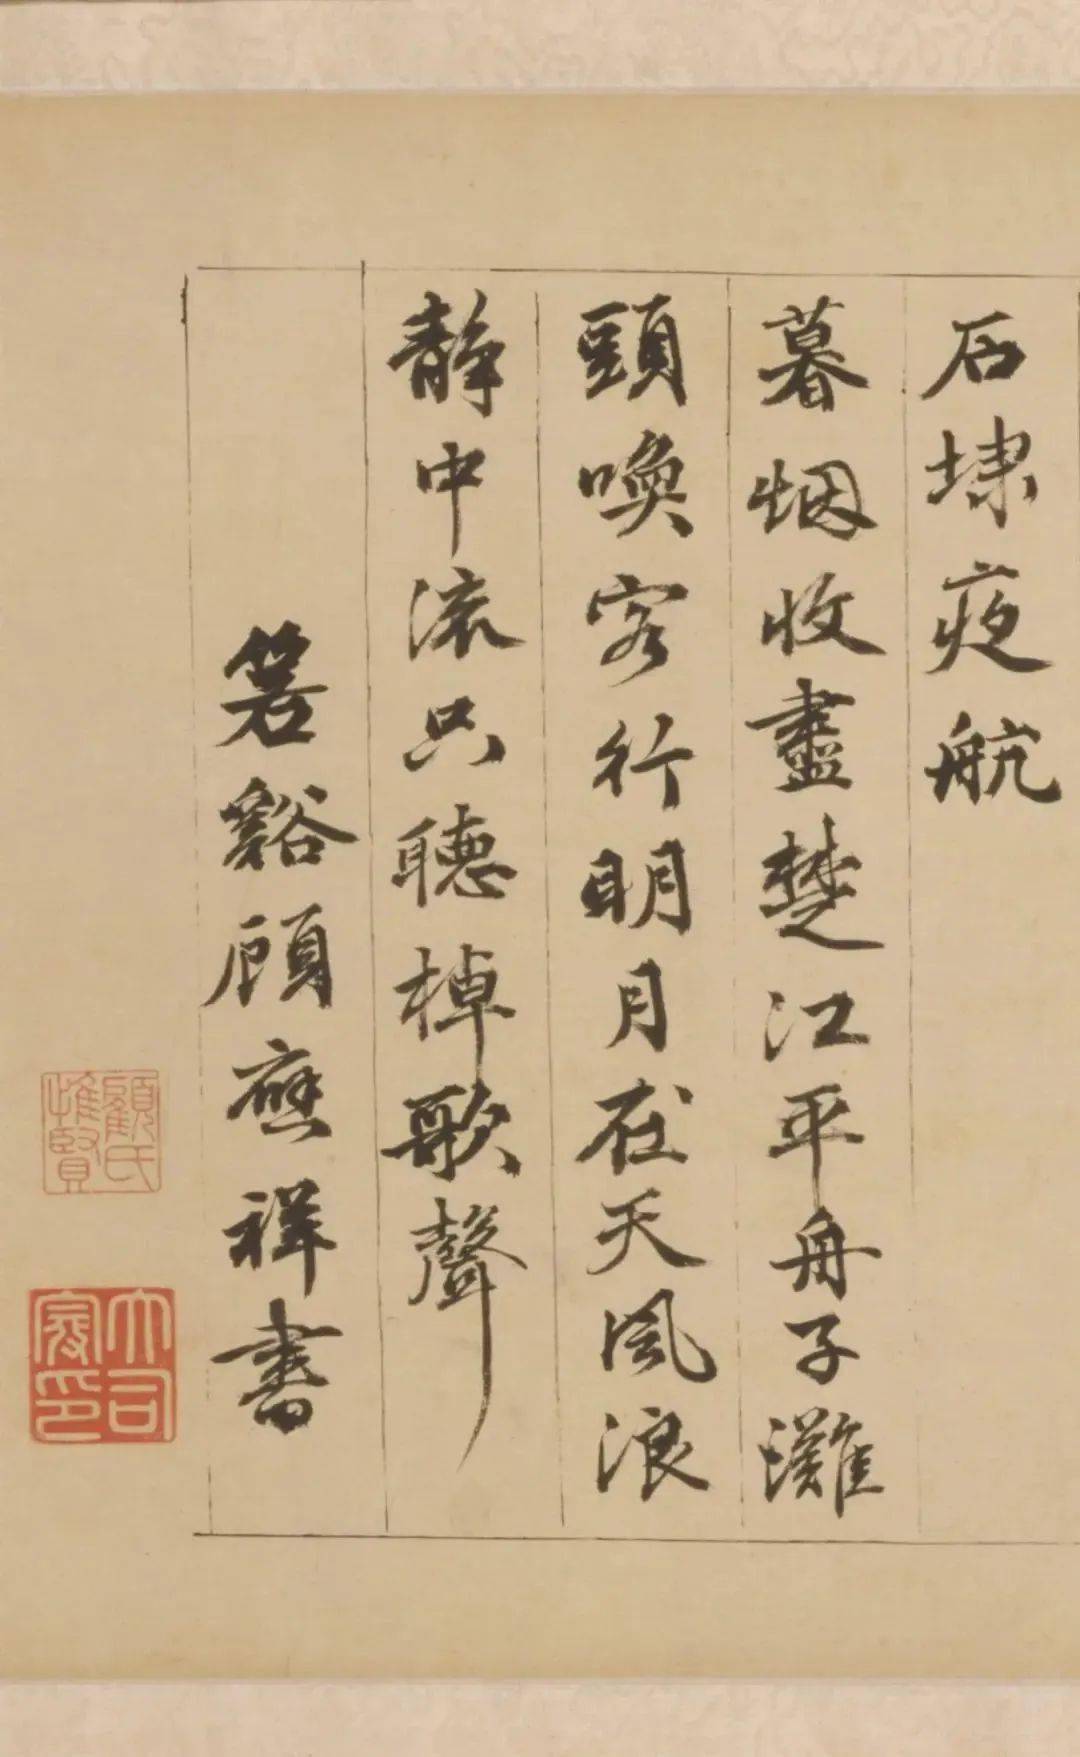 石埭夜航
暮烟收盡楚江平舟子灘
頭喚客行明月在天風浪
靜中流只聴棹歌聲
箬谿顧應祥書
顧氏惟賢
大司寇印